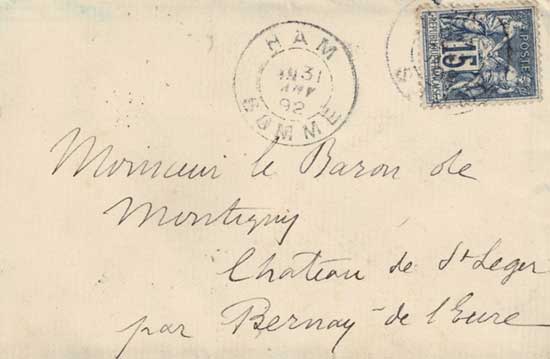 HAM
31
92
SOMME
15
POSTES
Monsieur le Baron de
Montigny
Chateau de St Leger
par Bernay-de l'Eure